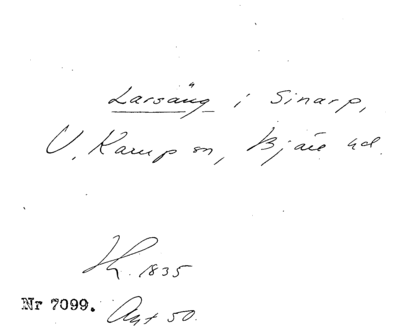 Larsäng i Sinarp,
V. Karup sn, Bjäre hd.
Lk. 1835
Nr 7099. Akt 50.